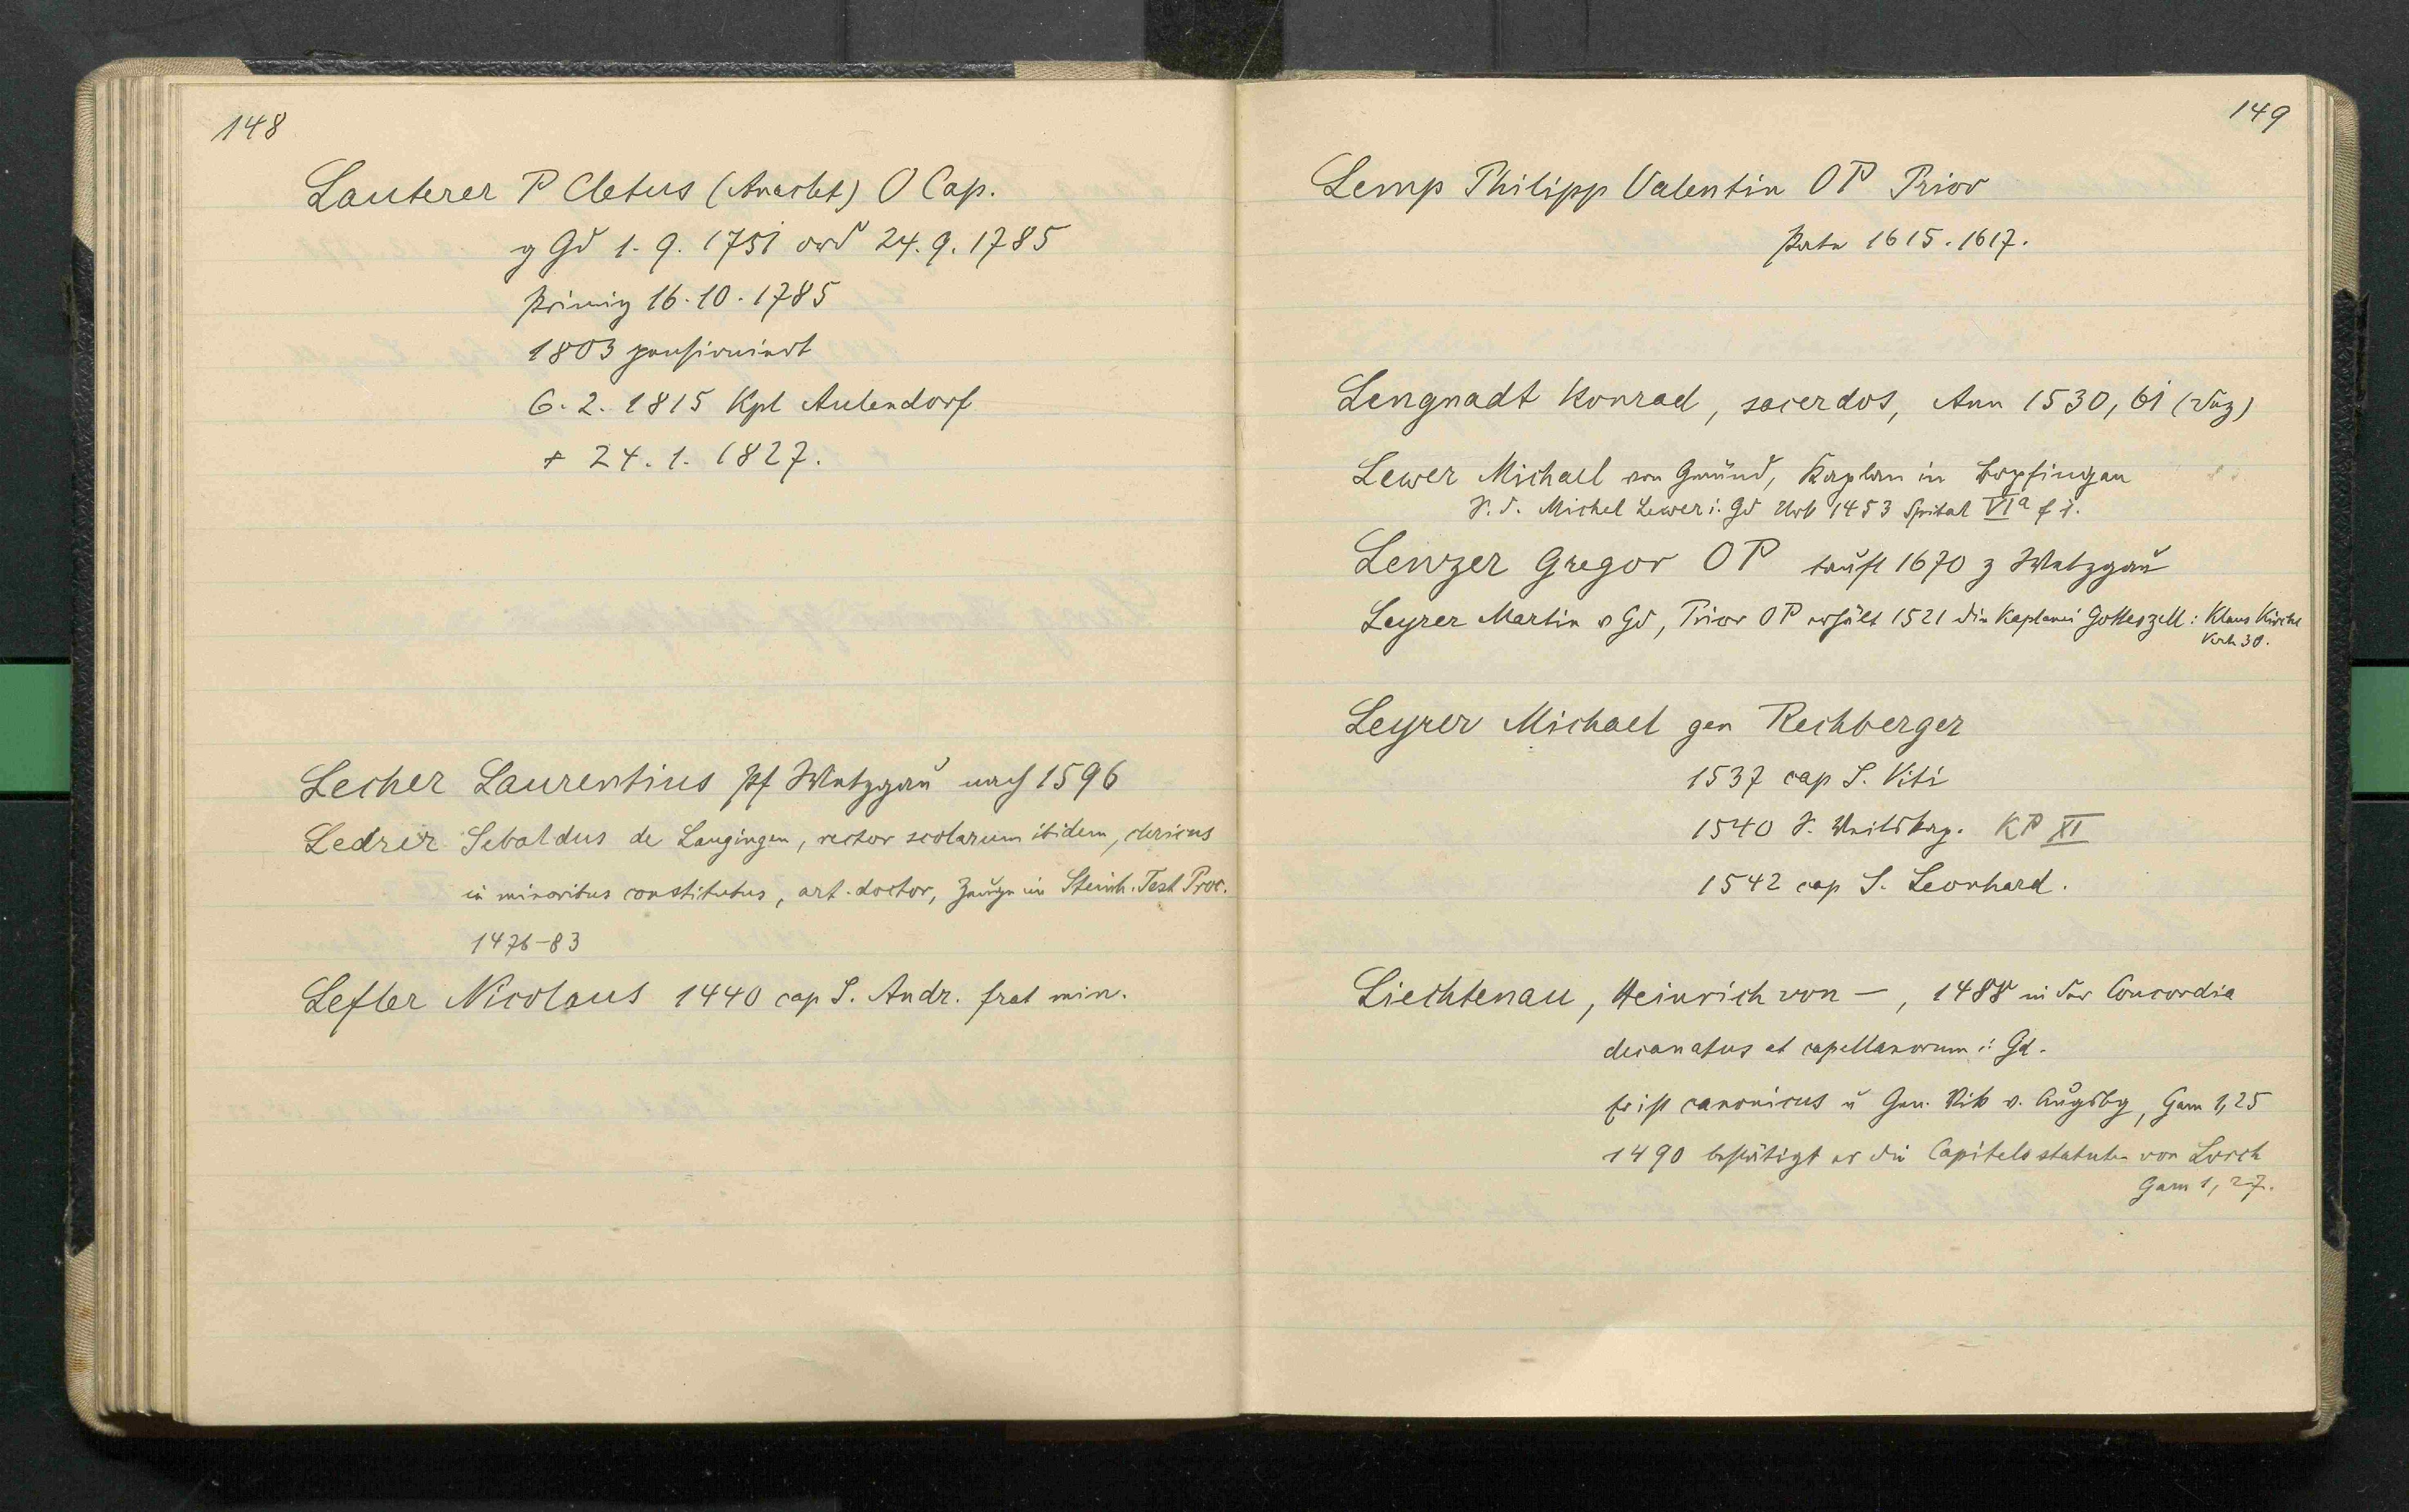 148
Lauterer P Cletus (Anaclet) O Cap.
g Gd 1.9.1751 ord 24.9.1785
Primiz 16.10.1785
1803 pensioniert
6.2.1815 Kpl Aulendorf
+ 24.1.1827.
Lecher Laurentius Pf Wetzgau nach 1596
Ledrer Sebaldus de Laugingen, rector scolarum ibidem, clericus
in minoribus constitutus, art. doctor, Zeuge in Steinh. Test Proc.
1476-83
Lefler Nicolaus 1440 cap S. Andr. frat min.
149
Lemp Philipp Valentin OP Prior
Pate 1615.1617.
Lengnadt Konrad, sacerdos, Ann 1530, 61
Lewer Michael von Gmünd, Kaplan in Bopfingen
S. d. Michel Lewer i. Gd Urk 1453 Spital VIa
Lenzer Gregor OP tauft 1670 z Wetzgau
Leyrer Martin v Gd, Prior OP erhält 1521 die Kaplanei Gotteszell: Klaus Kirche
30.
Leyrer Michael gen Rechberger
1537 cap S. Viti
1540 KP XI
1542 cap S. Leonhard.
Liechtenau, Heinrich von —, 1488 in der Concordia
decanatus et capellanorum i: Gd.
Er ist canonicus u Gen. Vik v. Augsbg, Gam 1,25
1490 bestätigt er die Capitelsstatuten von Lorch
Gam 1, 27.